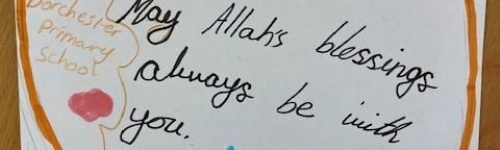 Dorchester
Primary
School
May Allah's blessings
always be with
you.